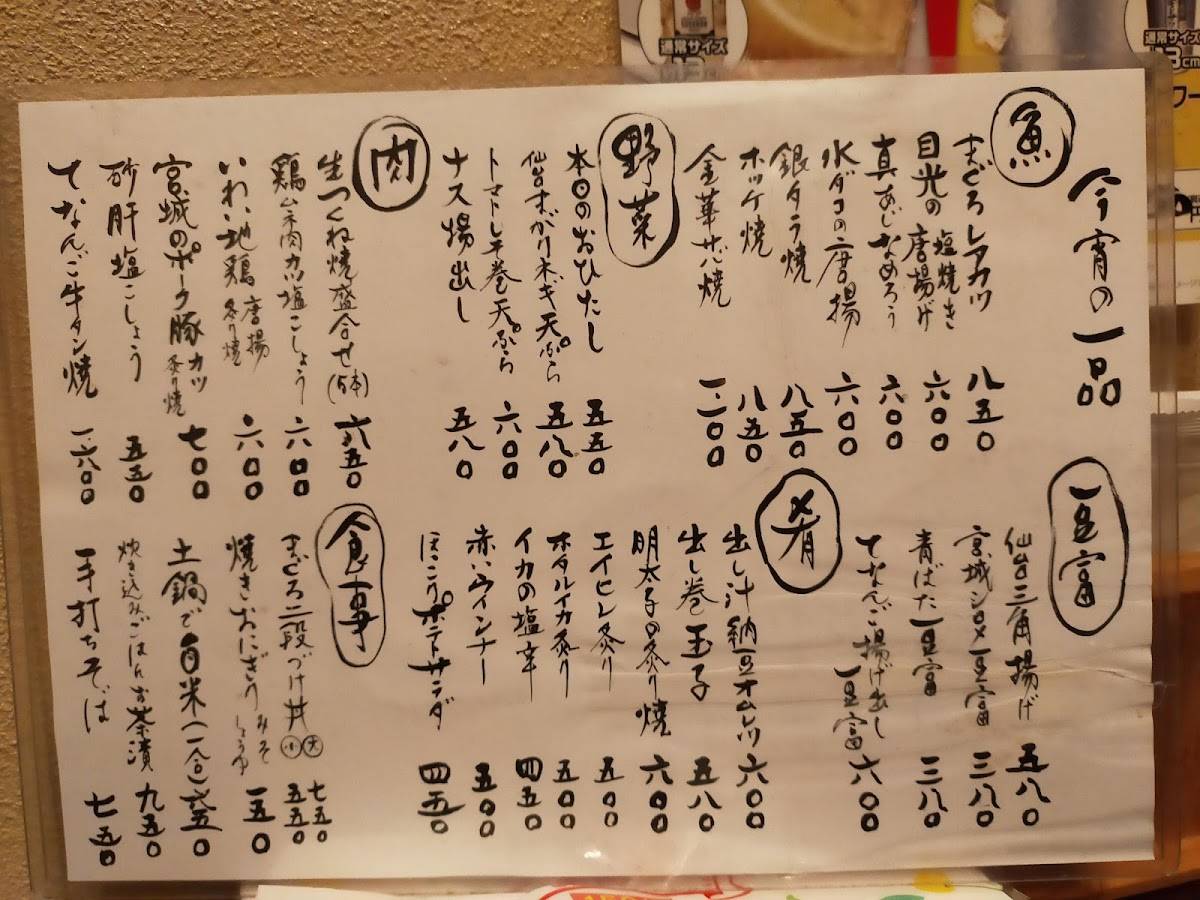 今宵の一品
魚
まぐろレアカツ 八五〇
目光の 塩焼き 唐揚げ 六〇〇
真あじなめろう 六〇〇
水ダコの唐揚 六〇〇
銀ダラ焼 八五〇
ホッケ焼 八五〇
金華サバ焼 一、二〇〇
野菜
本日のおひたし 五五〇
仙台まがりネギ天ぷら 五八〇
トマトしそ巻天ぷら 六〇〇
ナス揚出し 五八〇
肉
生つくね焼盛合せ(5本) 六五〇
鶏ムネ肉カツ塩こしょう 六〇〇
いわい地鶏 唐揚 炙り焼 六〇〇
宮城のポーク豚 カツ 炙り焼 七〇〇
砂肝塩こしょう 五五〇
てなんご牛タン焼 一、八〇〇
豆富
仙台三角揚げ 五八〇
宮城シロメ豆富 三八〇
青ばた豆富 三八〇
てなんご揚げ出し豆富 六〇〇
肴
出し汁納豆オムレツ 六〇〇
出し巻玉子 五八〇
明太子の炙り焼 六〇〇
エイヒレ炙り 五〇〇
ホタルイカ炙り 五〇〇
イカの塩辛 四五〇
赤いウインナー 五〇〇
ほっこりポテトサラダ 四五〇
食事
まぐろ二段づけ丼 大 小 七五〇 五五〇
焼きおにぎり みそ しょうゆ 一五〇
土鍋で白米(一合) 六五〇
炊き込みごはんお茶漬 九五〇
手打ちそば 七五〇
通常サイズ
3cm
通常サイズ
3cm